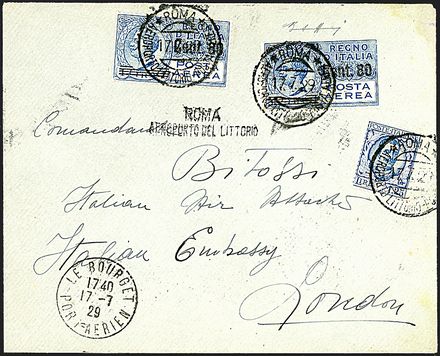 ROMA
17.7.29
REGNO
D'ITALIA
Cent. 80
POSTA
AEREA
Cent. 80
AEREA
ROMA
AEROPORTO DEL LITTORIO
ROMA
Comandante
Bitossi
Italian Air Attaché
Italian Embassy
London
LE BOURGET
1740
17-7
29
PORT-AERIEN